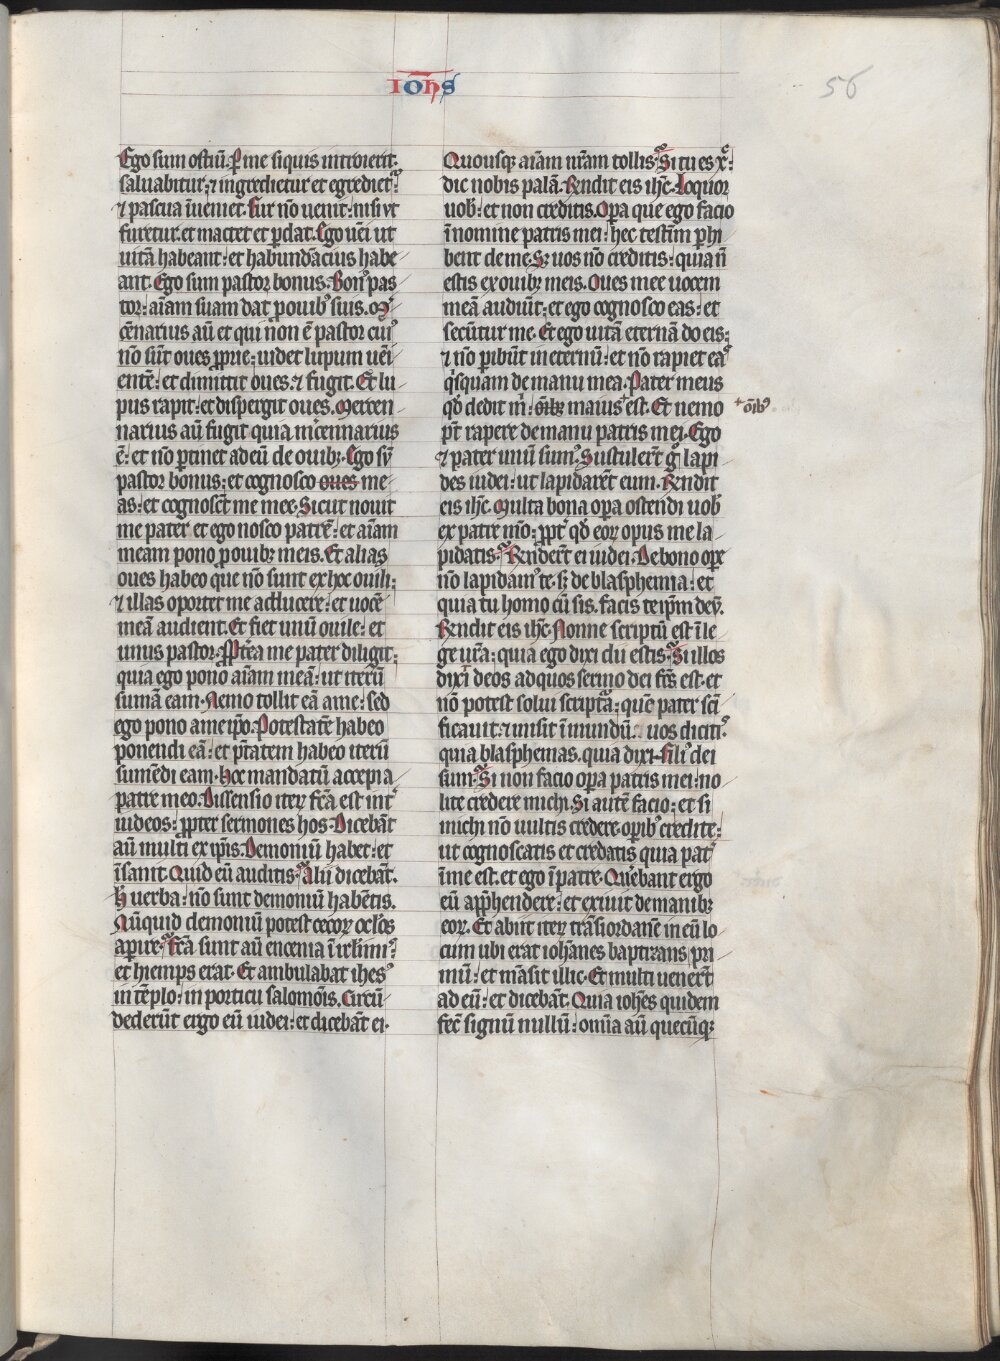 Ioh̄s
56
Ego sum ostiū. P̲ me siquis introierit:
saluabitur: ⁊ ingredietur et egrediet᷑.
⁊ pascua īueniet. Fur nō uenit: nisi vt
furetur. et mactet et p̲dat. Ego uēi ut
uitā habeant: et habundācius habe
ant. Ego sum pastor bonus. Bonꝰ pas
tor: aīam suam dat p̲ ouibꝰ suis. Mer
cēnarius aū et qui non ē pastor cuiꝰ
nō sūt oues ꝓprie: uidet lupum uēi
entē: et dimittit oues. ⁊ fugit. Et lu
pus rapit: et dispergit oues. Mercen
narius aū fugit quia m̄cennarius
ē: et nō p̲tinet ad eū de ouibꝫ. Ego sū
pastor bonus: et cognosco oues me
as: et cognoscūt me mee. Sicut nouit
me pater et ego nosco patrē: et aīam
meam pono p̲ ouibꝫ meis. Et alias
oues habeo que nō sunt ex hoc ouili:
⁊ illas oportet me adducere: et uocē
meā audient. Et fiet unū ouile: et
unus pastor. Ꝓpt̄ea me pater diligit:
quia ego pono aīam meā: ut iterū
sumā eam. Nemo tollit eā a me: sed
ego pono a me ip̄o. Potestatē habeo
ponendi eā: et p̄tatem habeo iterū
sumēdi eam. Hoc mandatū accepi a
patre meo. Dissensio iteꝝ fc̄a est int᷑
iudeos: ꝓpter sermones hos. Dicebāt
aū multi ex ip̄is. Demoniū habet: et
īsanit. Quid eū auditis. Alii dicebāt.
H̄ uerba: nō sunt demoniū habētis.
Nūquid demoniū potest cecoꝝ oc̄los
apire. Fc̄a sunt aū encenia ī irl̄imis:
et hiemps erat. Et ambulabat ihesꝰ
in tēplo: in porticu salomōis. Circū
dederūt ergo eū iudei: et dicebāt ei.
Quousqꝫ aīam nr̄am tollis. Si tu es xp̄c:
dic nobis palā. Rn̄dit eis ih̄c. Loquor
uob̄: et non creditis. Opa que ego facio
ī nomine patris mei: hec testīm phi
bent de me. Sꝫ uos nō creditis: quia n̄
estis ex ouibꝫ meis. Oues mee uocem
meā audiūt: et ego cognosco eas: et
secūtur me. Et ego uitā eternā do eis:
⁊ nō p̲ibūt in eternū: et nō rapiet eaˢ
qͥsquam de manu mea. Pater meus
qd̄ dedit m̄: oībꝫ maius + est. Et nemo
+ oībꝰ
pt̄ rapere de manu patris mei. Ego
⁊ pater unū sumꝰ. Sustulerūt g̊ lapi
des iudei: ut lapidarēt eum. Rn̄dit
eis ih̄c. Multa bona opa ostendi uob̄
ex patre m̄o: ꝓpt᷑ qd̄ eoꝝ opus me la
pidatis. Rn̄derūt ei iudei. De bono ope
nō lapidamꝰ te. sꝫ de blasphemia: et
quia tu homo cū sis. facis teip̄m deū.
Rn̄dit eis ih̄c. Nonne scriptū est ī le
ge ur̄a: quia ego dixi dii estis. Si illos
dixit deos ad quos sermo dei fc̄s est. et
nō potest solui scripta: quē pater sc̄i
ficauit. ⁊ misit ī mundū. uos dicitꝭ
quia blasphemas. quia dixi. Filiꝰ dei
sum. Si non facio opa patris mei: no
lite credere michi. Si autē facio: et si
michi nō uultis credere. opibꝰ credite:
ut cognoscatis et credatis quia pat᷑
ī me est. et ego ī patre. Querebant ergo
eū appͥhendere: et exiuit de manibꝫ
eoꝝ. Et abiit iteꝝ trāsiordanē in eū lo
cum ubi erat ioh̄anes baptizans pri
mū: et māsit illic. Et multi uenerūt
ad eū: et dicebāt. Quia ioh̄es quidem
fec̄ signū nullū: omīa aū quecūqꝫ